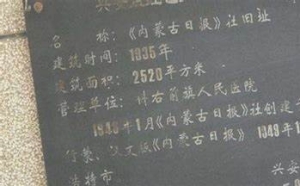 名 称：《内蒙古日报》社旧址
建筑时间：1935年
建筑面积：2520平方米
管理单位：科右前旗人民医院
1948年1月《内蒙古日报》社创建
行蒙、汉文版《内蒙古日报》 1949年1
浩特市
兴安